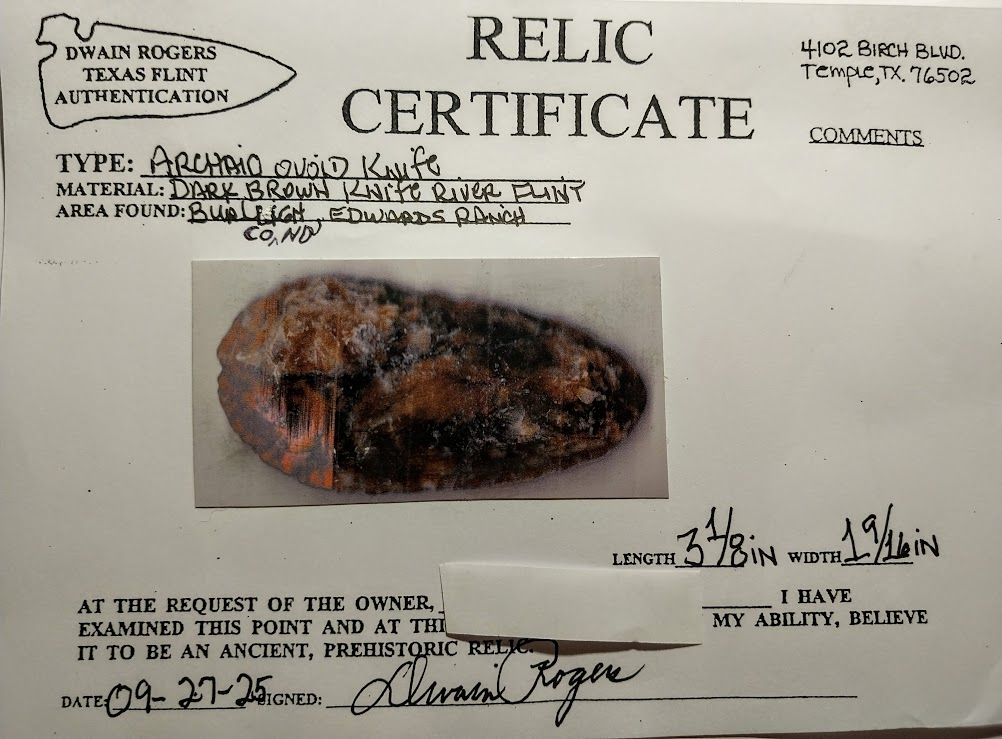 DWAIN ROGERS
TEXAS FLINT
AUTHENTICATION
RELIC
CERTIFICATE
4102 BIRCH BLVD.
Temple, TX. 76502
COMMENTS
TYPE: ARCHAIC OVOID KNIFE
MATERIAL: DARK BROWN KNIFE RIVER FLINT
AREA FOUND: BURLEIGH, EDWARDS RANCH
CO, ND
LENGTH 3 1/8 IN WIDTH 1 9/16 IN
AT THE REQUEST OF THE OWNER, I HAVE
EXAMINED THIS POINT AND AT MY ABILITY, BELIEVE
IT TO BE AN ANCIENT, PREHISTORIC RELIC.
DATE: 09-27-25 SIGNED: Dwain Rogers